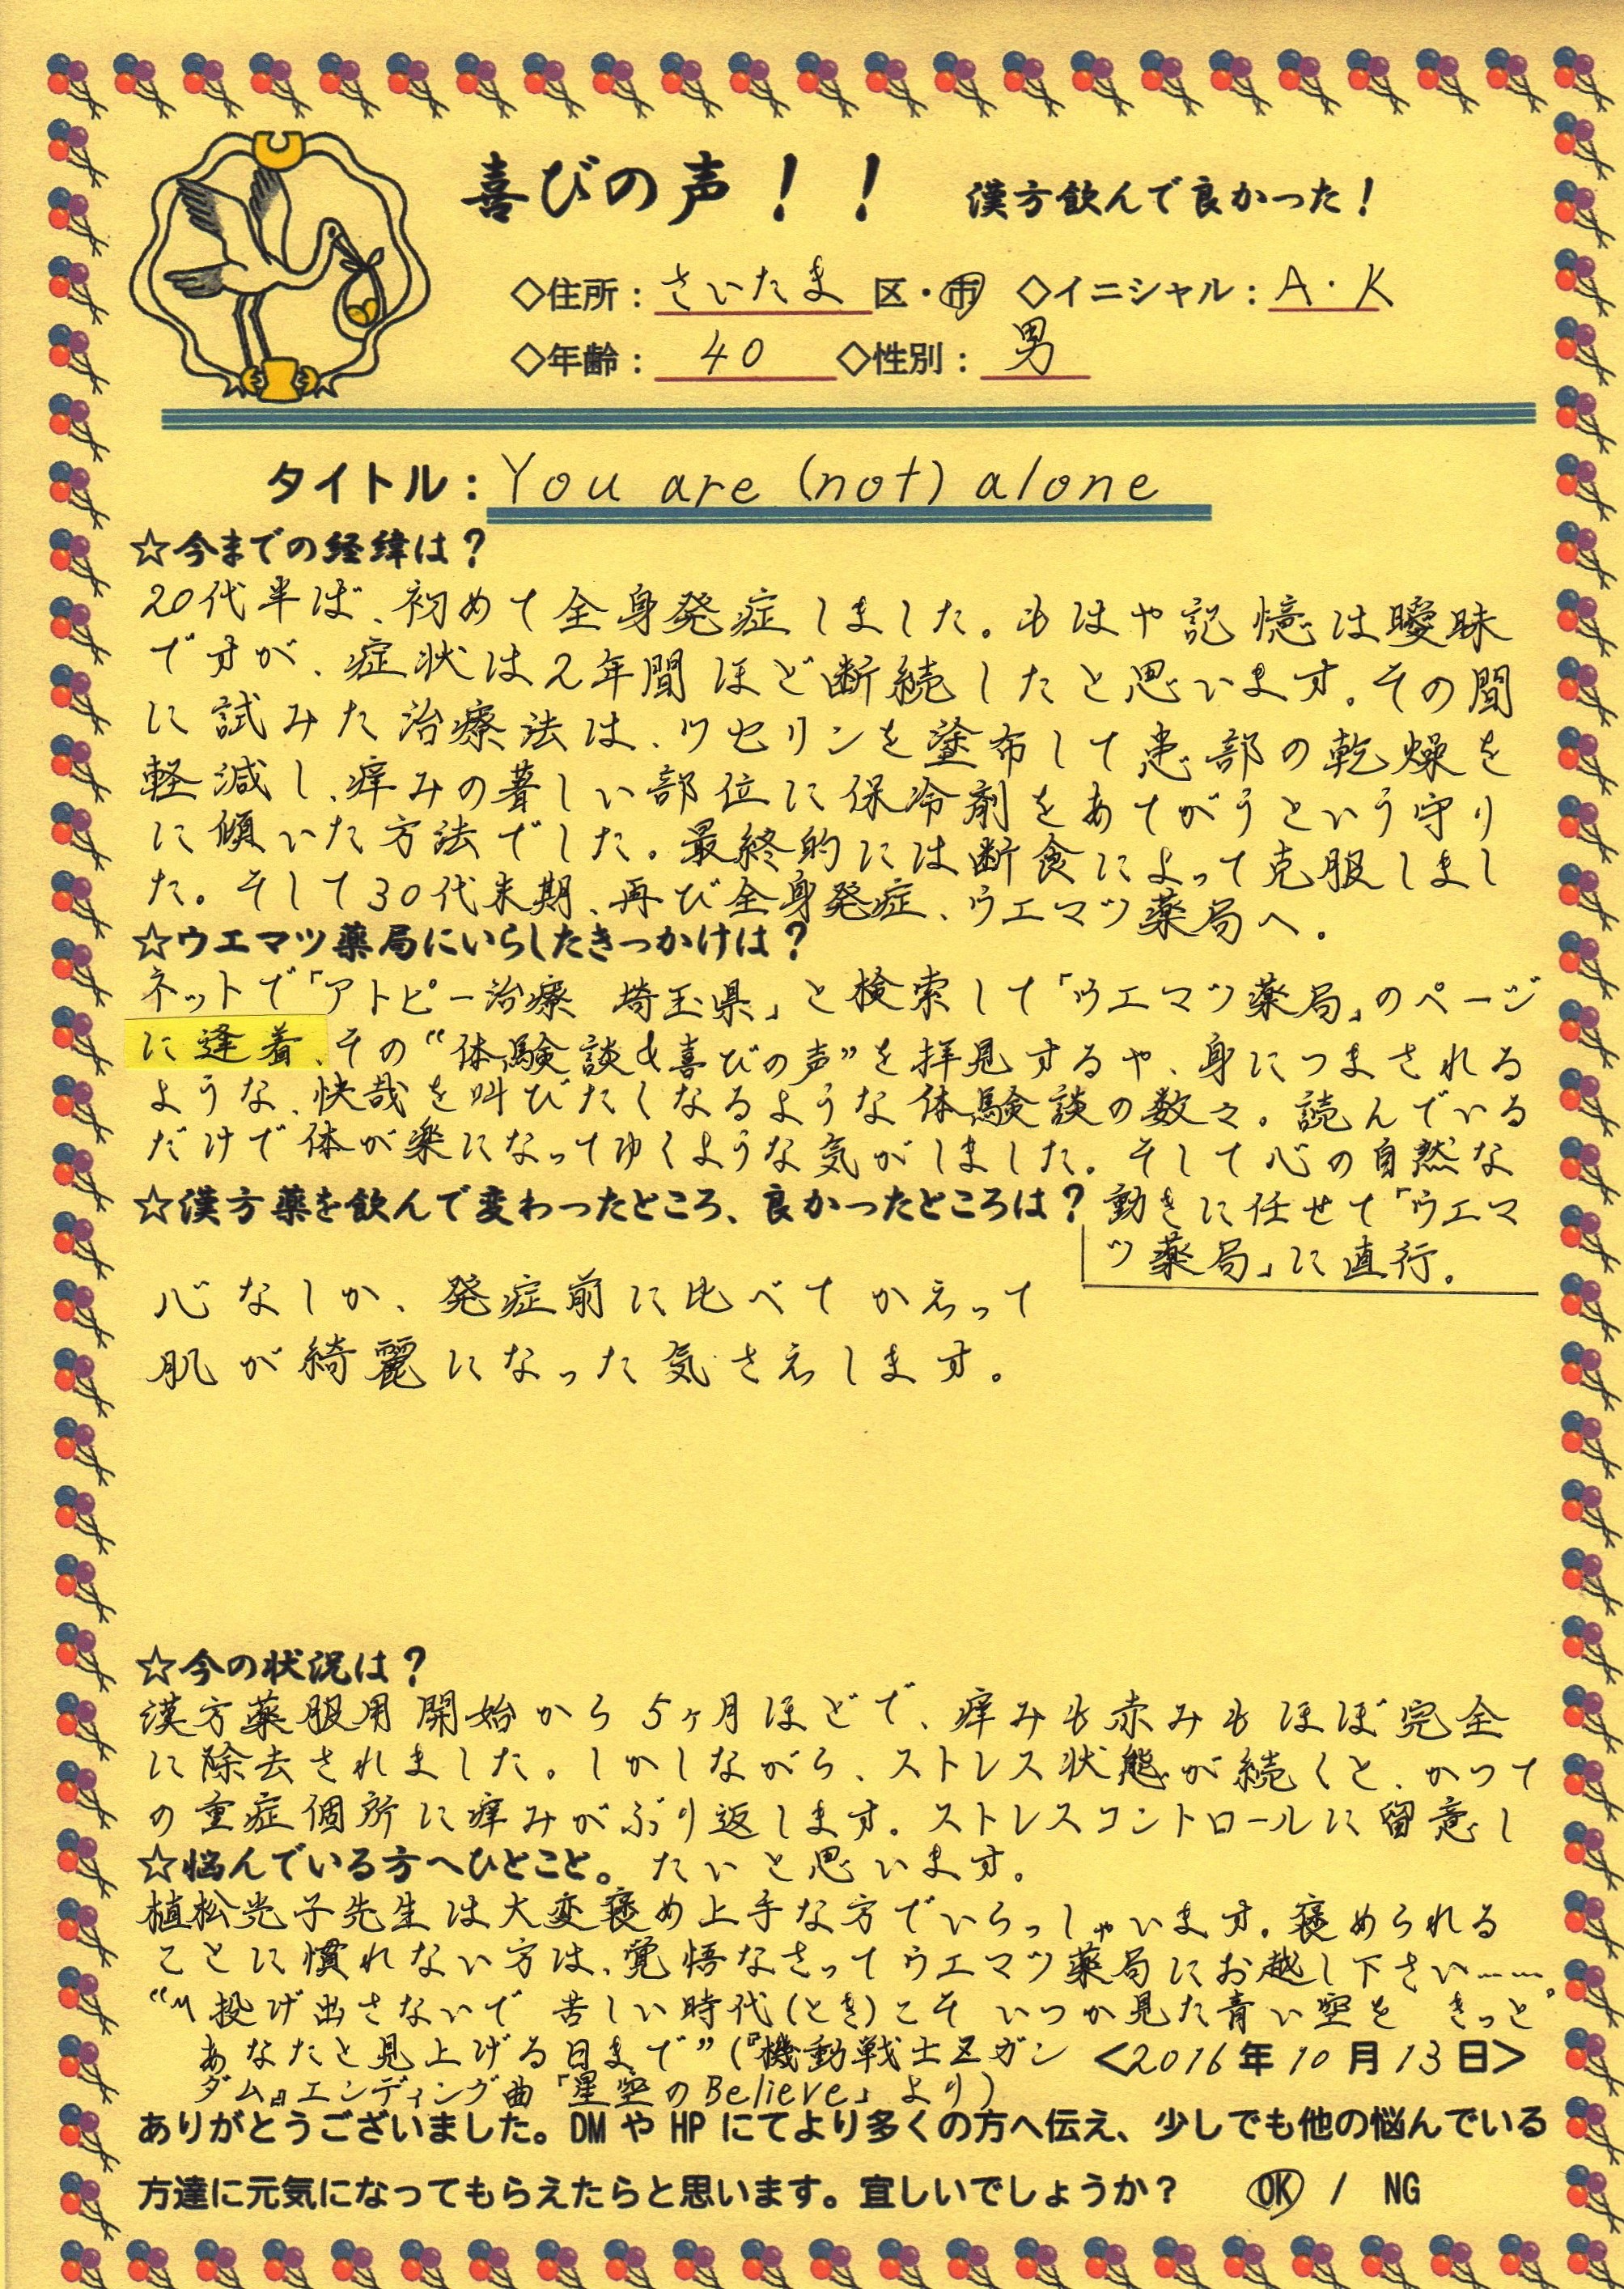 喜びの声！！　漢方飲んで良かった！
◇住所：さいたま 区・市　◇イニシャル：A・K
◇年齢：40　◇性別：男
タイトル：You are (not) alone
☆今までの経緯は？
20代半ば、初めて全身発症しました。もはや記憶は曖昧
ですが、症状は2年間ほど断続したと思います。その間
に試みた治療法は、ワセリンを塗布して患部の乾燥を
軽減し、痒みの著しい部位に保冷剤をあてがうという守り
に傾いた方法でした。最終的には断食によって克服しまし
た。そして30代末期、再び全身発症、ウエマツ薬局へ。
☆ウエマツ薬局にいらしたきっかけは？
ネットで「アトピー治療　埼玉県」と検索して「ウエマツ薬局」のページ
に逢着、その“体験談&喜びの声”を拝見するや、身につまされる
ような、快哉を叫びたくなるような体験談の数々。読んでいる
だけで体が楽になってゆくような気がしました。そして心の自然な
動きに任せて「ウエマ
ツ薬局」に直行。
☆漢方薬を飲んで変わったところ、良かったところは？
心なしか、発症前に比べてかえって
肌が綺麗になった気さえします。
☆今の状況は？
漢方薬服用開始から5ヶ月ほどで、痒みも赤みもほぼ完全
に除去されました。しかしながら、ストレス状態が続くと、かつて
の重症個所に痒みがぶり返します。ストレスコントロールに留意し
たいと思います。
☆悩んでいる方へひとこと。
植松光子先生は大変褒め上手な方でいらっしゃいます。褒められる
ことに慣れない方は、覚悟なさってウエマツ薬局にお越し下さい……
“投げ出さないで 苦しい時代(とき)こそ いつか見た青い空を きっと
あなたと見上げる日まで”(『機動戦士Zガン
ダム』エンディング曲「星空のBelieve」より)
<2016年10月13日>
ありがとうございました。DMやHPにてより多くの方へ伝え、少しでも他の悩んでいる
方達に元気になってもらえたらと思います。宜しいでしょうか？　OK / NG